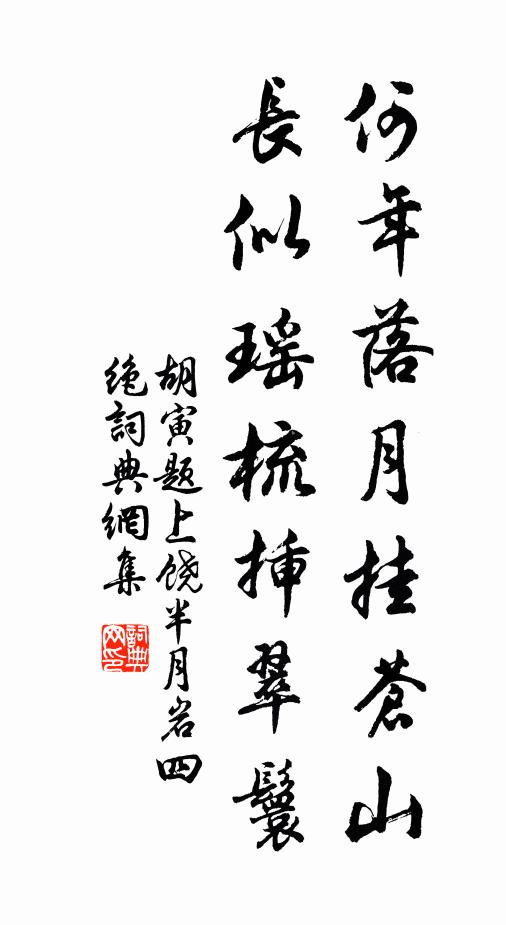 何年落月挂蒼山
長似瑶梳揷翠鬟
胡寅题上饶半月岩四
绝詞典網集
詞典
网印